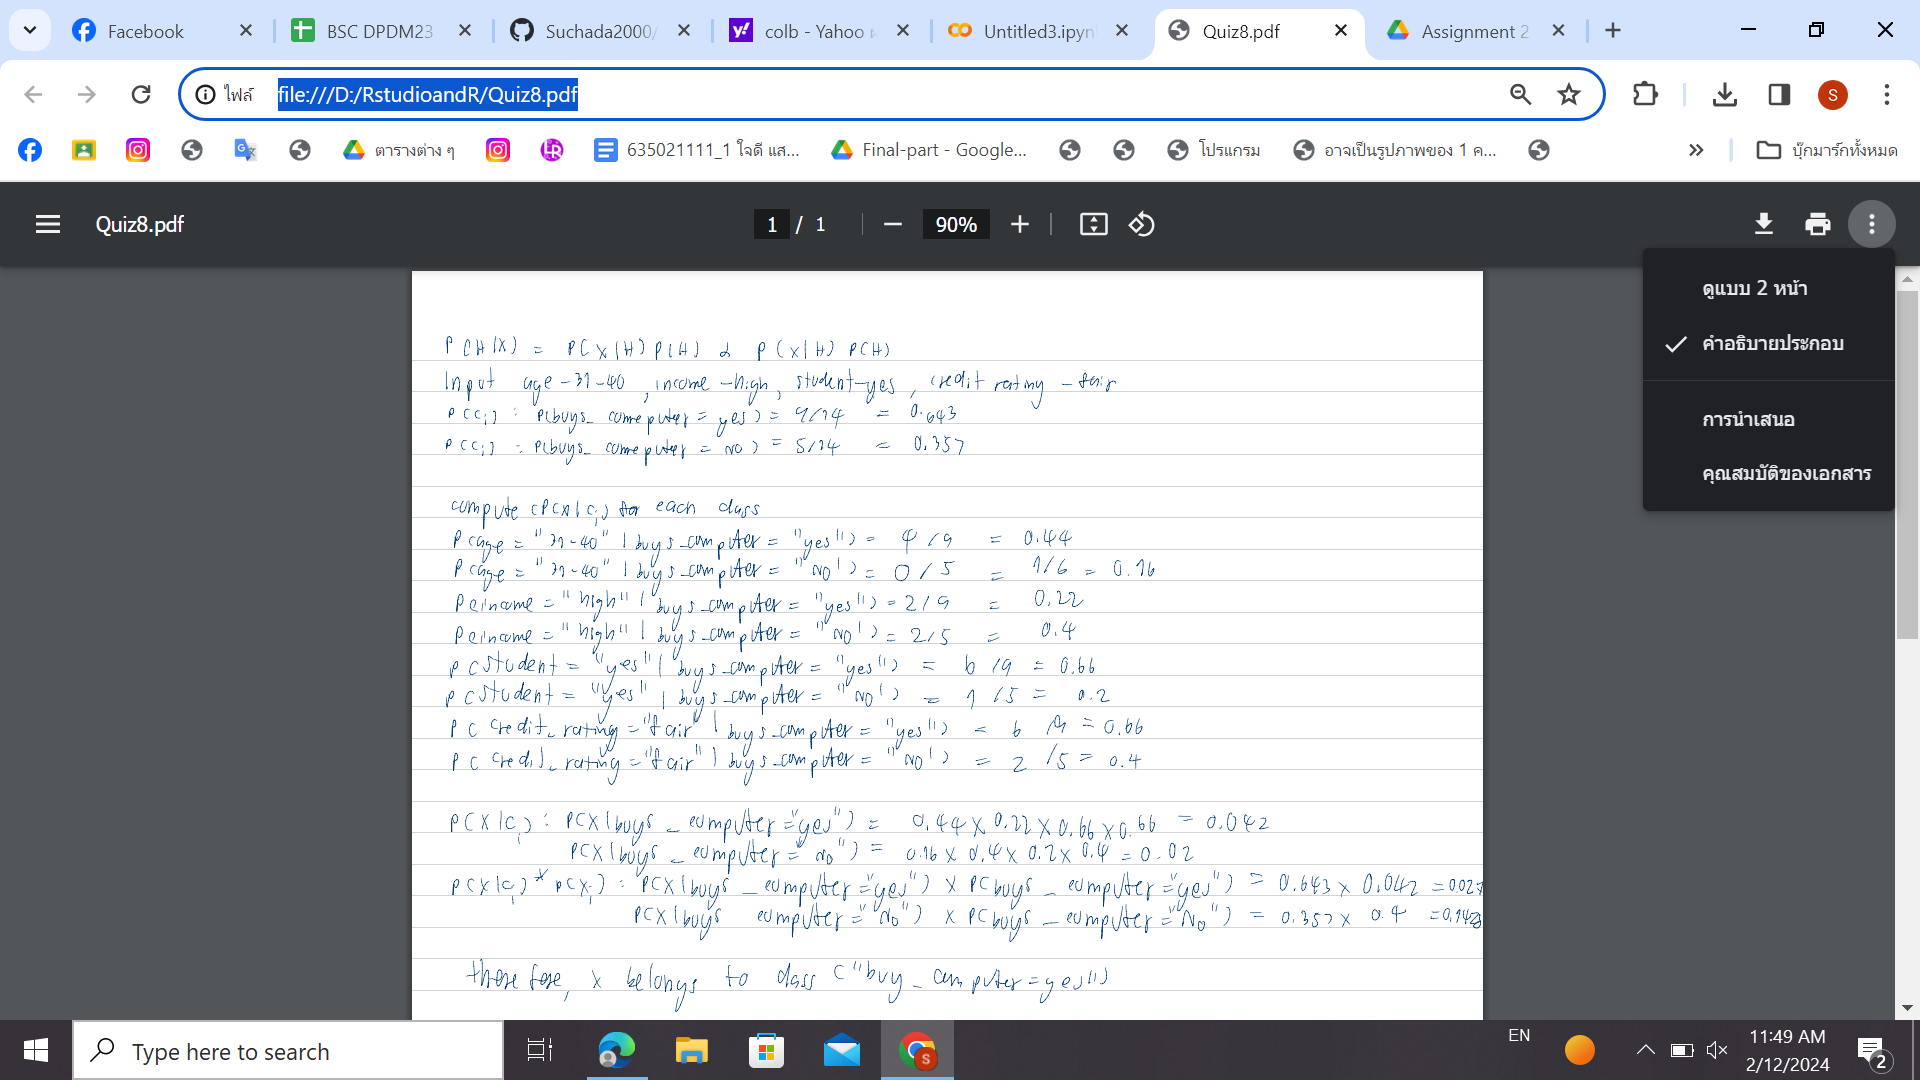 Facebook
BSC DPDM23
Suchada2000/
colb - Yahoo
Untitled3.ipyn
Quiz8.pdf
Assignment 2
ไฟล์ file:///D:/RstudioandR/Quiz8.pdf
S
ตารางต่าง ๆ
635021111_1 ใจดี แส...
Final-part - Google...
โปรแกรม
อาจเป็นรูปภาพของ 1 ค...
บุ๊กมาร์กทั้งหมด
Quiz8.pdf
1 / 1
90%
ดูแบบ 2 หน้า
คำอธิบายประกอบ
การนำเสนอ
คุณสมบัติของเอกสาร
P(H|X) = P(X|H) P(H) α P(X|H) P(H)
Input age-31-40, income-high, student-yes, credit rating - fair
P(Ci) : P(buys_computer = yes) = 9/14 = 0.643
P(Ci) : P(buys_computer = no) = 5/14 = 0.357
compute (P(X|Ci) for each class
P(age = "31-40" | buys_computer = "yes") = 4/9 = 0.44
P(age = "31-40" | buys_computer = "No") = 0/5 = 1/6 = 0.16
P(income = "high" | buys_computer = "yes") = 2/9 = 0.22
P(income = "high" | buys_computer = "No") = 2/5 = 0.4
P(student = "yes" | buys_computer = "yes") = 6/9 = 0.66
P(student = "yes" | buys_computer = "No") = 1/5 = 0.2
P(credit_rating = "fair" | buys_computer = "yes") = 6/9 = 0.66
P(credit_rating = "fair" | buys_computer = "No") = 2/5 = 0.4
P(X|Ci) : P(X|buys_computer = "yes") = 0.44 x 0.22 x 0.66 x 0.66 = 0.042
P(X|buys_computer = "no") = 0.16 x 0.4 x 0.2 x 0.4 = 0.02
P(X|Ci) * P(Xi) : P(X|buys_computer = "yes") x P(buys_computer = "yes") = 0.643 x 0.042 = 0.027
P(X|buys computer = "No") x P(buys_computer = "No") = 0.357 x 0.4 = 0.1428
therefore, x belongs to class ("buy_computer = yes")
Type here to search
EN
11:49 AM
2/12/2024
2